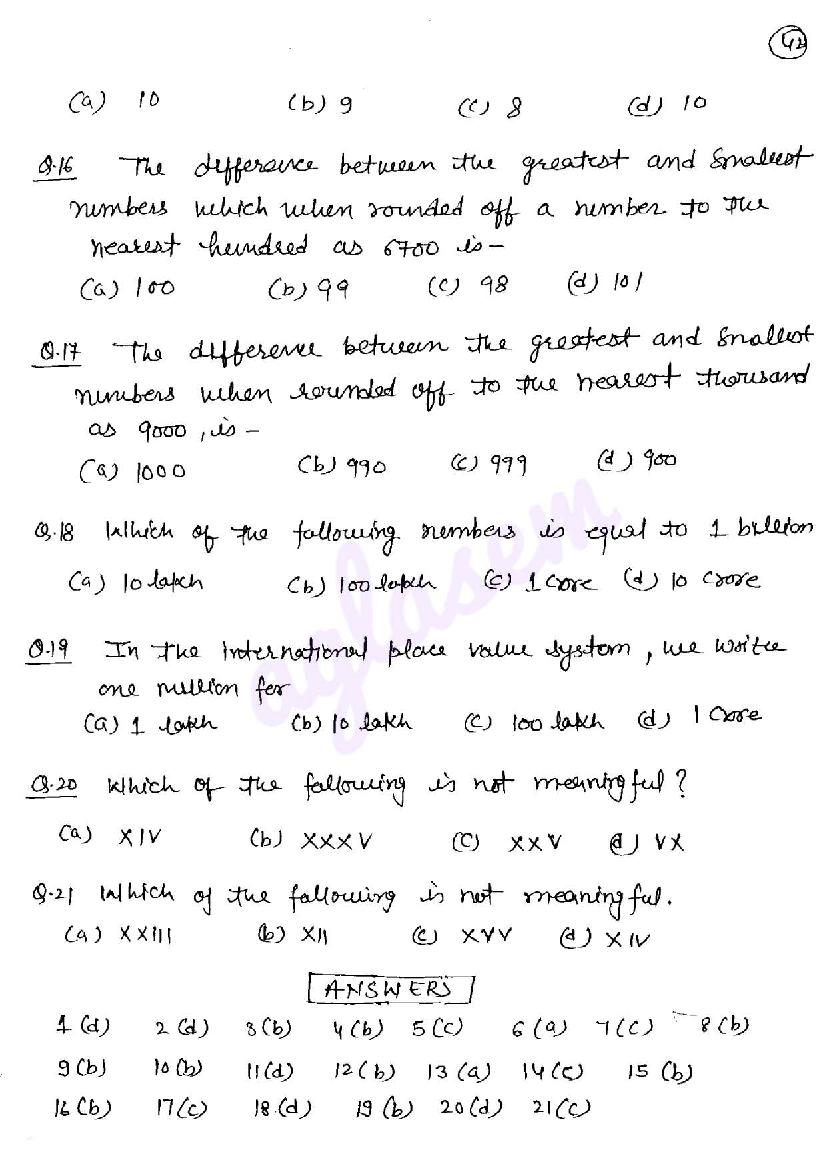 42
(a) 10 (b) 9 (c) 8 (d) 10
Q.16 The difference between the greatest and smallest
numbers which when rounded off a number to the
nearest hundred as 6700 is -
(a) 100 (b) 99 (c) 98 (d) 101
Q.17 The difference between the greatest and smallest
numbers when rounded off to the nearest thousand
as 9000, is -
(a) 1000 (b) 990 (c) 999 (d) 900
Q.18 Which of the following numbers is equal to 1 billion
(a) 10 lakh (b) 100 lakh (c) 1 crore (d) 10 crore
Q.19 In the international place value system, we write
one million for
(a) 1 lakh (b) 10 lakh (c) 100 lakh (d) 1 crore
Q.20 Which of the following is not meaningful?
(a) XIV (b) XXXV (c) XXV (d) VX
Q.21 Which of the following is not meaningful.
(a) XXIII (b) XII (c) XVV (d) XIV
ANSWERS
1 (d) 2 (d) 3 (b) 4 (b) 5 (c) 6 (a) 7 (c) 8 (b)
9 (b) 10 (b) 11 (d) 12 (b) 13 (a) 14 (c) 15 (b)
16 (b) 17 (c) 18.(d) 19 (b) 20 (d) 21 (c)
aglasem